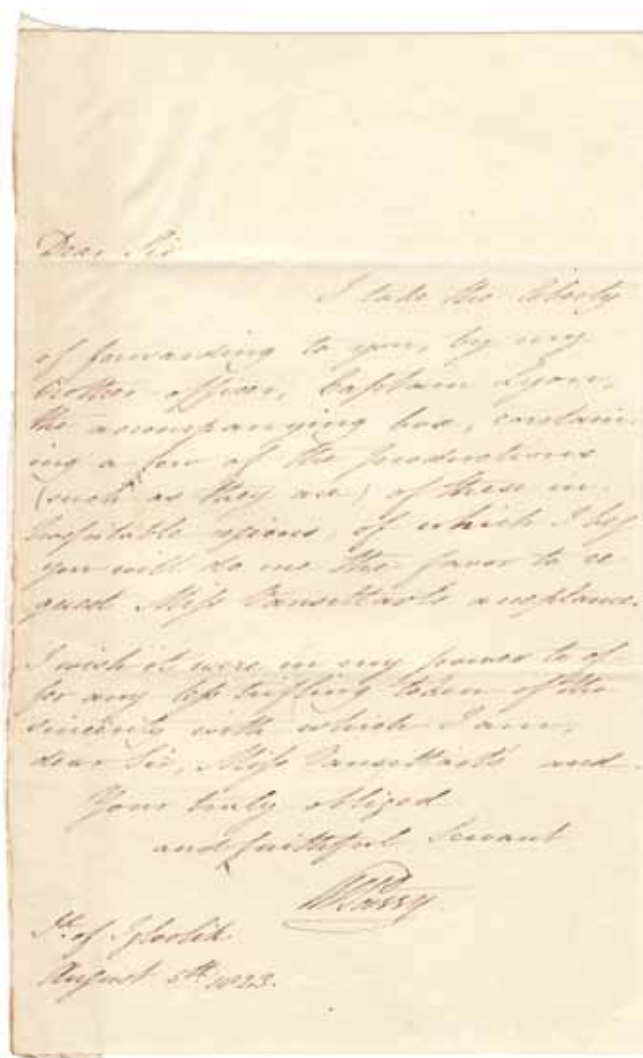 Dear Sir
I take the liberty
of forwarding to you, by my
brother officer, Captain Lyon,
the accompanying box, contain-
ing a few of the productions
(such as they are) of these in-
hospitable regions, of which I beg
you will do me the favor to re
quest Miss Vansittart's acceptance.
I wish it were in my power to of
fer any less trifling token of the
sincerity with which I am,
dear Sir, Miss Vansittart's and
Your truly obliged
and faithful Servant
WEParry.
Id. of Igloolik
August 5th 1823.